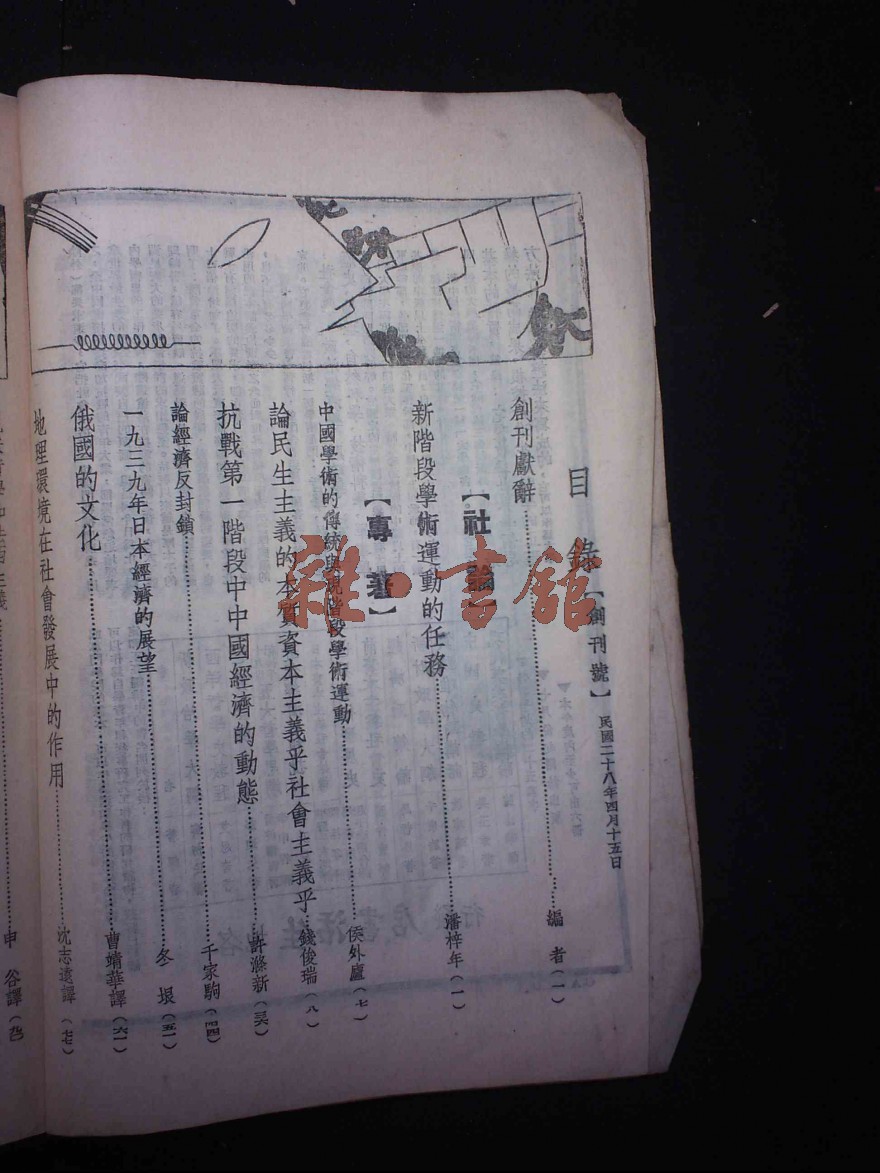 目錄
【創刊號】
民國二十八年四月十五日
創刊獻辭 編者(一)
【社論】
新階段學術運動的任務 潘梓年(一)
【專著】
中國學術的傳統與現階段學術運動 侯外廬(七)
論民生主義的本質資本主義乎社會主義乎 錢俊瑞(八)
抗戰第一階段中中國經濟的動態 許滌新(三六)
論經濟反封鎖 千家駒(四四)
一九三九年日本經濟的展望 冬垠(五一)
俄國的文化 曹靖華譯(六一)
地理環境在社會發展中的作用 沈志遠譯(七七)
申谷譯
雜·書館